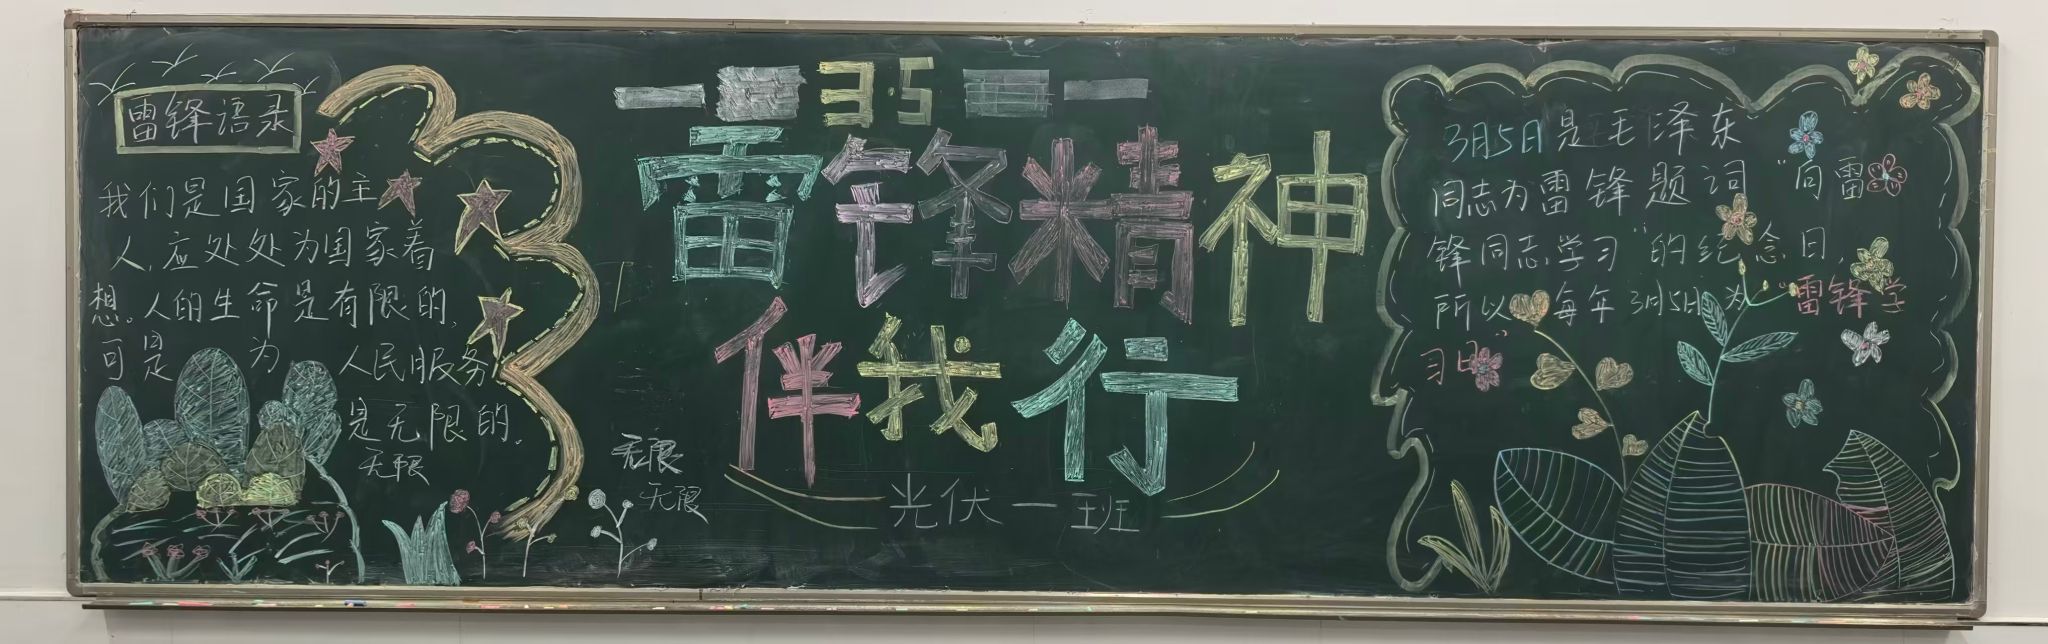 雷锋语录
我们是国家的主
人,应处处为国家着
想。人的生命是有限的,
可是 为 人民服务
是无限的。
无限
3.5
雷锋精神
伴我行
无限
无限
光伏一班
3月5日是毛泽东
同志为雷锋题词“向雷
锋同志学习”的纪念日,
所以 每年3月5日为“雷锋学
习日”